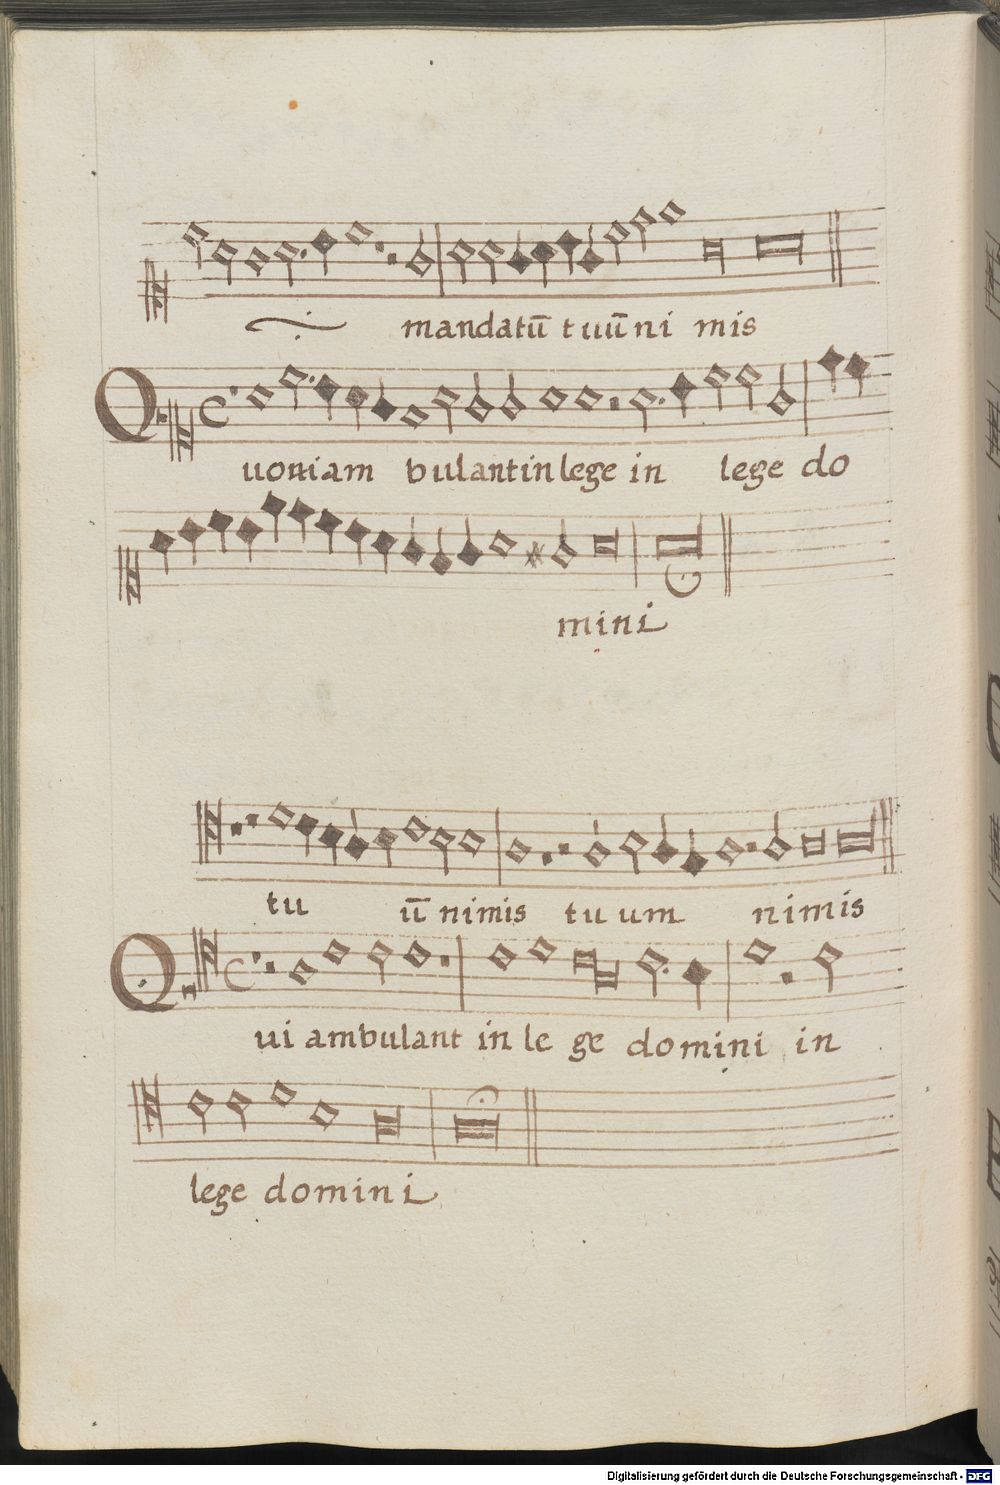 mandatū tuū ni mis
Quoniam bulant in lege in lege do
mini
tu ū nimis tuum nimis
Qui ambulant in le ge domini in
lege domini
Digitalisierung gefördert durch die Deutsche Forschungsgemeinschaft - DFG